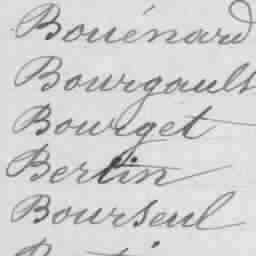 Bouénard
Bourgault
Bourget
Bertin
Bourseul